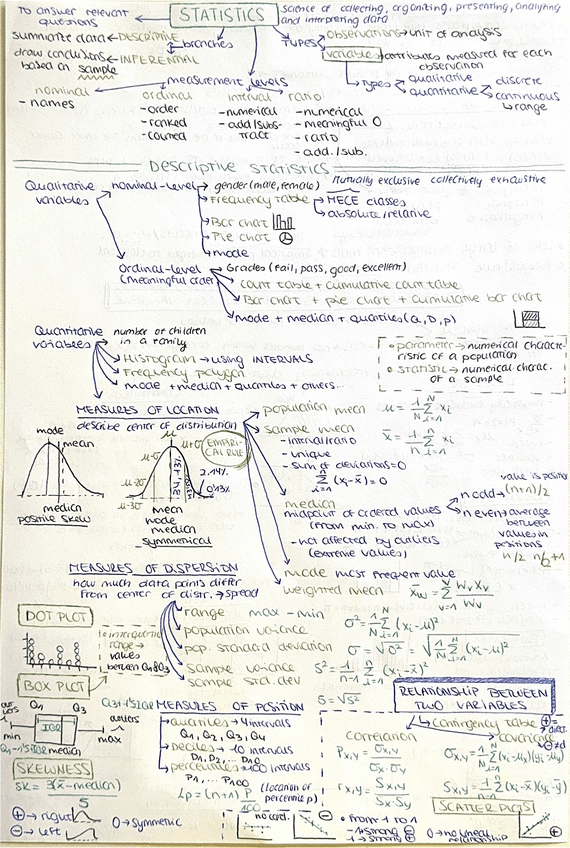 To answer relevant questions
STATISTICS
Science of collecting, organizing, presenting, analyting and interpreting data
summarize data ← DESCRIPTIVE
branches
draw conclusions ← INFERENTIAL
based on sample
TYPES
observations → unit of analysis
variables → attributes measured for each observation
types
qualitative
quantitative
discrete
continuous
↳ range
measurement levels
nominal
- names
ordinal
- order
- ranked
- counted
interval
- numerical
- add/subs-
tract
ratio
- numerical
- meaningful 0
- ratio
- add./sub.
Descriptive statistics
Qualitative variables
nominal-level → gender (male, female)
Mutually exclusive collectively exhaustive
Frequency table → MECE classes
absolute/relative
Bar chart
Pie chart
mode
Ordinal-level
(meaningful order)
Grades (fail, pass, good, excellent)
count table + cumulative count table
Bar chart + pie chart + cumulative bar chart
mode + median + quantiles (a, D, p)
Quantitative variables
number of children in a family
Histogram → using INTERVALS
Frequency polygon
mode + median + quantiles + others...
parameter → numerical characte-
ristic of a population
statistic → numerical charac.
of a sample
MEASURES OF LOCATION
describe center of distribution
population mean
μ = 1/N Σ xi
sample mean
x̄ = 1/n Σ xi
- interval/ratio
- unique
- sum of deviations = 0
Σ (xi - x̄) = 0
mode
mean
median
positive skew
μ
μ+σ
EMPIRI-
CAL RULE
μ-2σ
μ-3σ
2.14%
0.13%
mean
mode
median
symmetrical
median
midpoint of ordered values
(from min. to max)
- not affected by outliers
(extreme values)
value is position
n odd → (n+1)/2
n even → average
between
values in
positions
n/2 n/2+1
mode most frequent value
weighted mean
MEASURES OF DISPERSION
how much data points differ
from center of distr. → spread
range max - min
population variance
σ² = 1/N Σ (xi - μ)²
pop. standard deviation
σ = √σ² = √1/N Σ (xi - μ)²
sample variance
S² = 1/n-1 Σ (xi - x̄)²
sample std. dev
S = √S²
DOT PLOT
interquartile
range →
values
between Q1 & Q3
BOX PLOT
Q1 Q3
Q3+1.5IQR
outliers
IQR
min
max
median
Q1-1.5IQR
SKEWNESS
SK = 3(x̄-median)/S
⊕ → right
⊖ → left
0 → symmetric
MEASURES OF POSITION
quartiles → 4 intervals
Q1, Q2, Q3, Q4
deciles → 10 intervals
D1, D2, ... D10
percentiles → 100 intervals
P1, ... P100
Lp = (n+1) P/100
(location of
percentile p)
RELATIONSHIP BETWEEN
TWO VARIABLES
contingency table
correlation
covariance
ρx,y = σx,y / σx·σy
σx,y = 1/N Σ (xi-μx)(yi-μy)
rx,y = Sx,y / Sx·Sy
Sx,y = 1/n-1 Σ (xi-x̄)(yi-ȳ)
SCATTER PLOTS
no corr.
from -1 to 1
-1 strong ⊖
1 → strong ⊕
0 → no linear
relationship